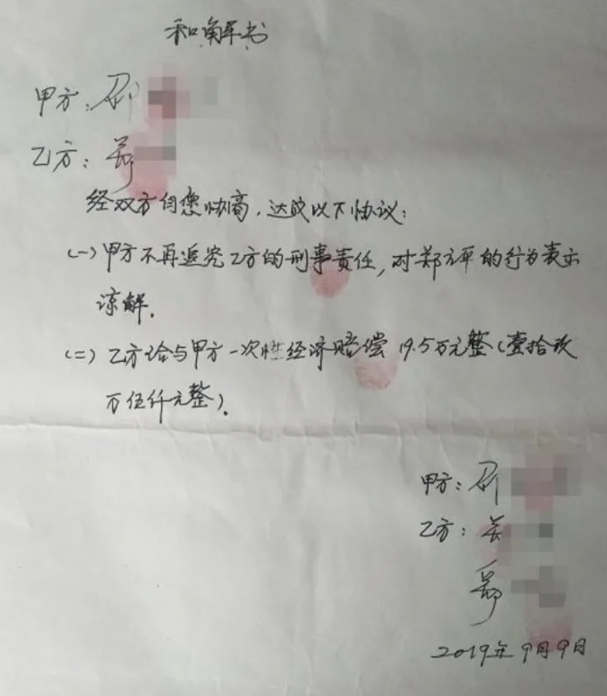 和解书
甲方：邵
乙方：郑
经双方自愿协商，达成以下协议：
(一)甲方不再追究乙方的刑事责任，对郑方平的行为表示
谅解。
(二)乙方给与甲方一次性经济赔偿19.5万元整(壹拾玖
万伍仟元整)。
甲方：邵
乙方：
郑
2019年9月9日